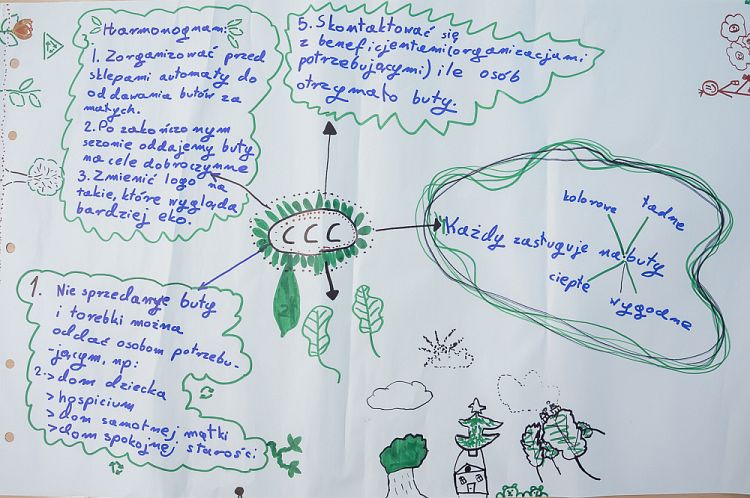 Harmonogram:
1. Zorganizować przed
sklepami automaty do
oddawania butów za
małych.
2. Po zakończonym
sezonie oddajemy buty
na cele dobroczynne
3. Zmienić logo na
takie, które wygląda
bardziej eko.
5. Skontaktować się
z beneficjentami (organizacjami
potrzebującymi) ile osób
otrzymało buty.
CCC
kolorowe
ładne
Każdy zasługuje na buty
ciepłe
wygodne
1. Nie sprzedanye buty
i torebki można
oddać osobom potrzebu-
-jącym, np:
2. > dom dziecka
> hospicium
> dom samotnej matki
> dom spokojnej starości